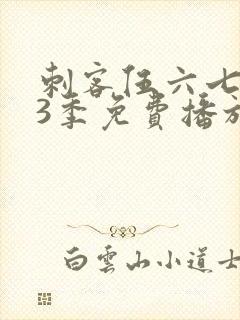 刺客伍六七
3季免費播放
白雲山小道士